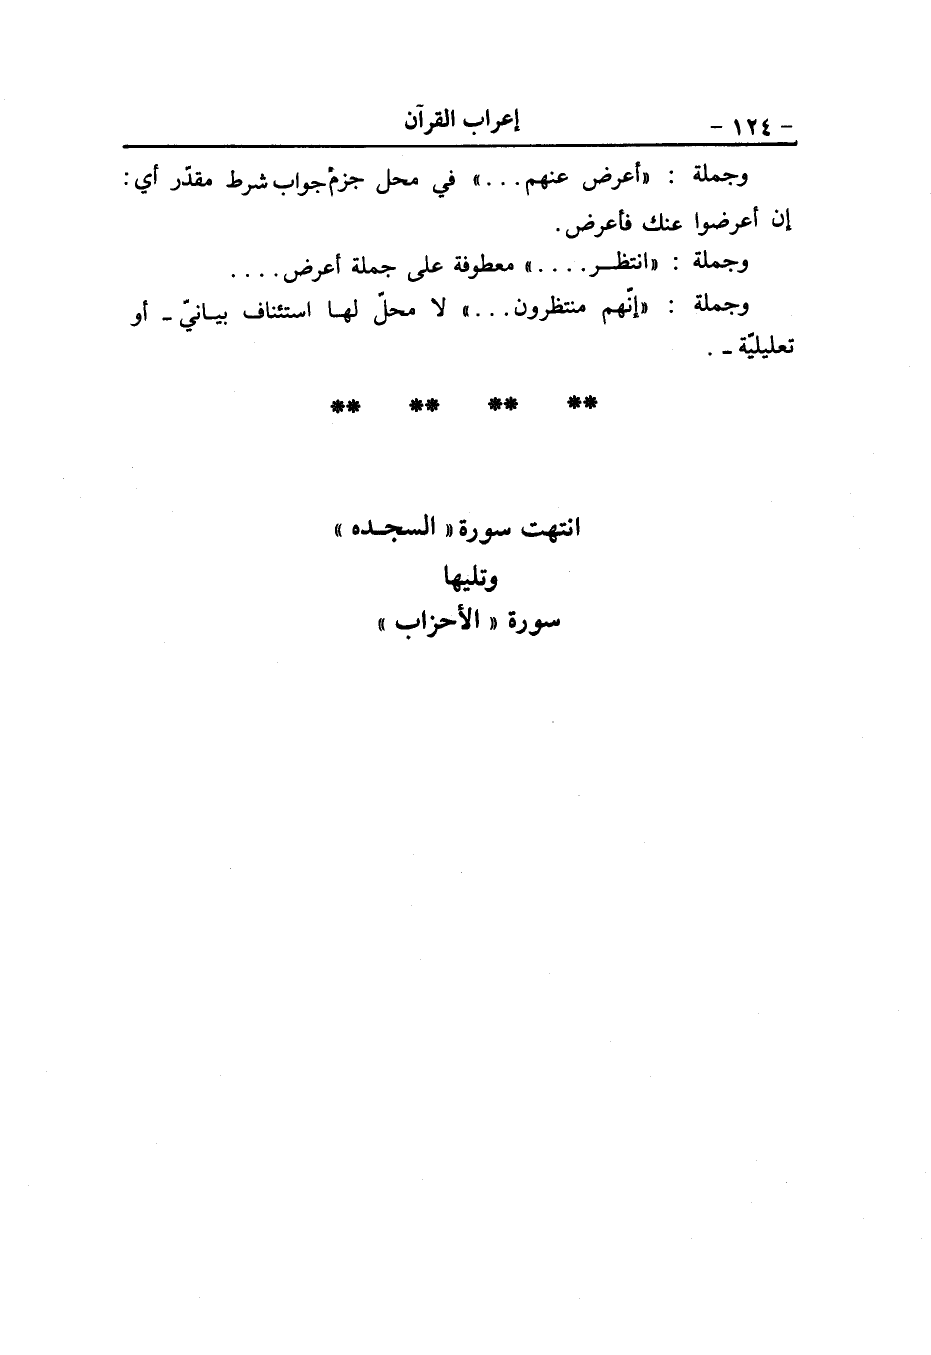 - ١٢٤ - إعراب القرآن
وجملة : «أعرض عنهم...» في محل جزم جواب شرط مقدّر أي :
إن أعرضوا عنك فأعرض.
وجملة : «انتظـر....» معطوفة على جملة أعرض....
وجملة : «إنّهم منتظرون...» لا محلّ لهـا استئناف بيـانيّ ـ أو
تعليليّة ـ .
** ** ** **
انتهت سورة « السجـده »
وتليها
سورة « الأحزاب »